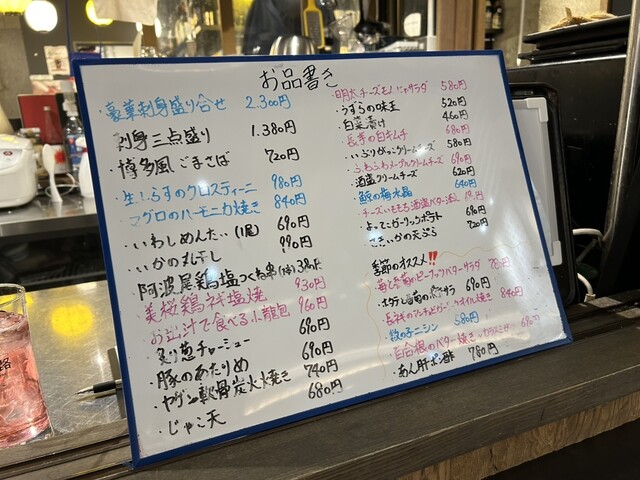 お品書き
・豪華刺身盛り合せ 2.300円
・刺身三点盛り 1.380円
・博多風ごまさば 720円
・生しらすのクロスティーニ 980円
・マグロのハーモニカ焼き 840円
・いわしめんたい(1尾) 690円
・いかの丸干し 990円
・阿波尾鶏塩つくね串
・美桜鶏ネギ塩焼 930円
・お出汁で食べる小籠包 960円
・炙り葱チャーシュー 690円
・豚のあたりめ 690円
・ヤゲン軟骨炭火焼き 740円
・じゃこ天 680円
・明太チーズもんじゃサラダ 580円
・うずらの味玉 520円
・白菜漬け 460円
・長芋の白キムチ 680円
・いぶりがっこクリームチーズ 580円
・ふわふわメープルクリームチーズ 690円
・酒盗クリームチーズ 620円
・鯨の梅水晶 640円
・チーズいももち 酒盗バター
・よってこガーリックポテト 690円
天ぷら 720円
季節のオススメ!!
バターサラダ
サラ 690円
・数の子ニシン 580円
・百合根のバター焼き 690円
・あん肝ポン酢 780円